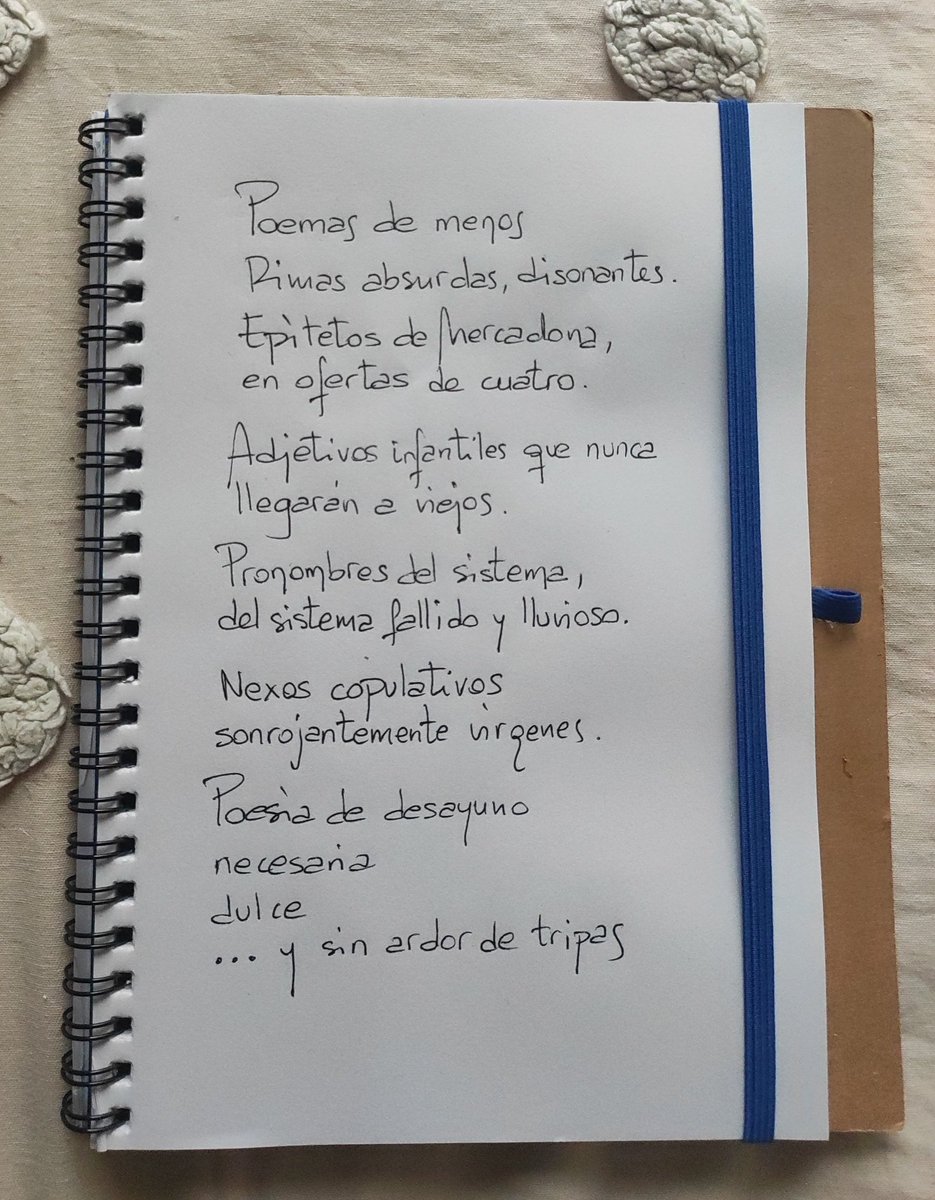 Poemas de menos
Rimas absurdas, disonantes.
Epítetos de Mercadona,
en ofertas de cuatro.
Adjetivos infantiles que nunca
llegarán a viejos.
Pronombres del sistema,
del sistema fallido y lluvioso.
Nexos copulativos
sonrojantemente vírgenes.
Poesía de desayuno
necesaria
dulce
... y sin ardor de tripas